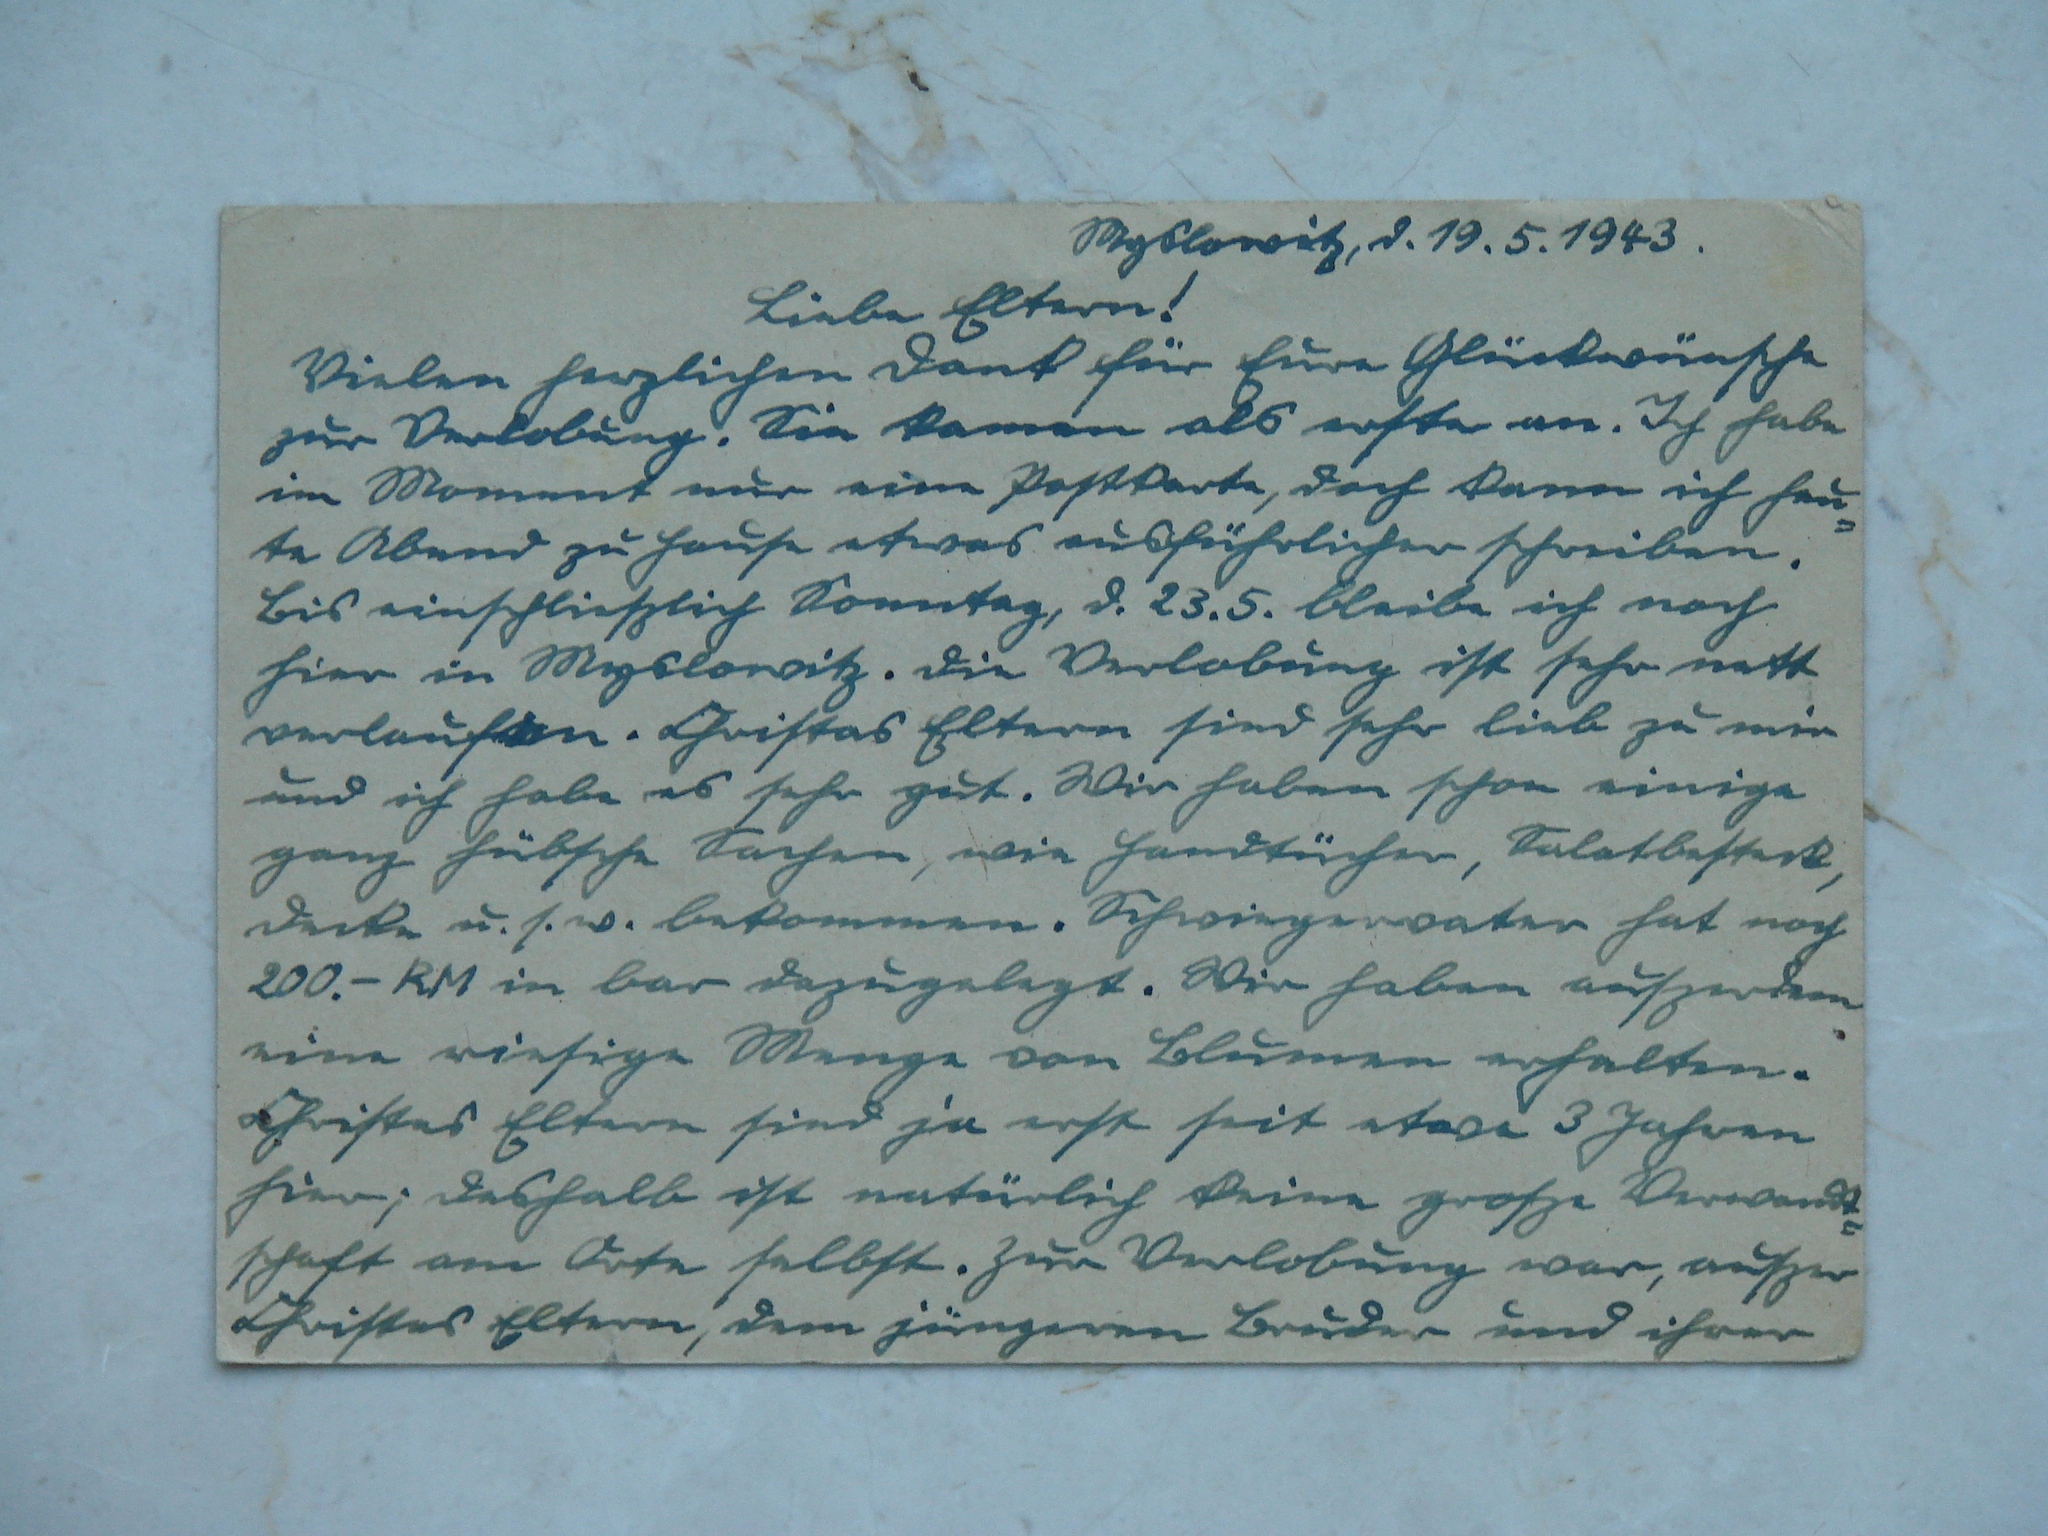 Myslowitz, d. 19.5.1943.
Liebe Eltern!
Vielen herzlichen Dank für Eure Glückwünsche
zur Verlobung. Sie kamen als erste an. Ich habe
im Moment nur eine Postkarte, doch kann ich heu=
te Abend zu Hause etwas ausführlicher schreiben.
Bis einschlieszlich Sonntag, d. 23.5. bleibe ich noch
hier in Myslowitz. Die Verlobung ist sehr nett
verlaufen. Christas Eltern sind sehr lieb zu mir
und ich habe es sehr gut. Wir haben schon einige
ganz hübsche Sachen, wie Handtücher, Salatbesteck,
Decke u.s.w. bekommen. Schwiegervater hat noch
200.- RM in bar dazugelegt. Wir haben auszerdem
eine riesige Menge von Blumen erhalten.
Christas Eltern sind ja erst seit etwa 3 Jahren
hier; deshalb ist natürlich keine grosze Verwandt=
schaft am Orte selbst. Zur Verlobung war, auszer
Christas Eltern, dem jüngeren Bruder und ihrer